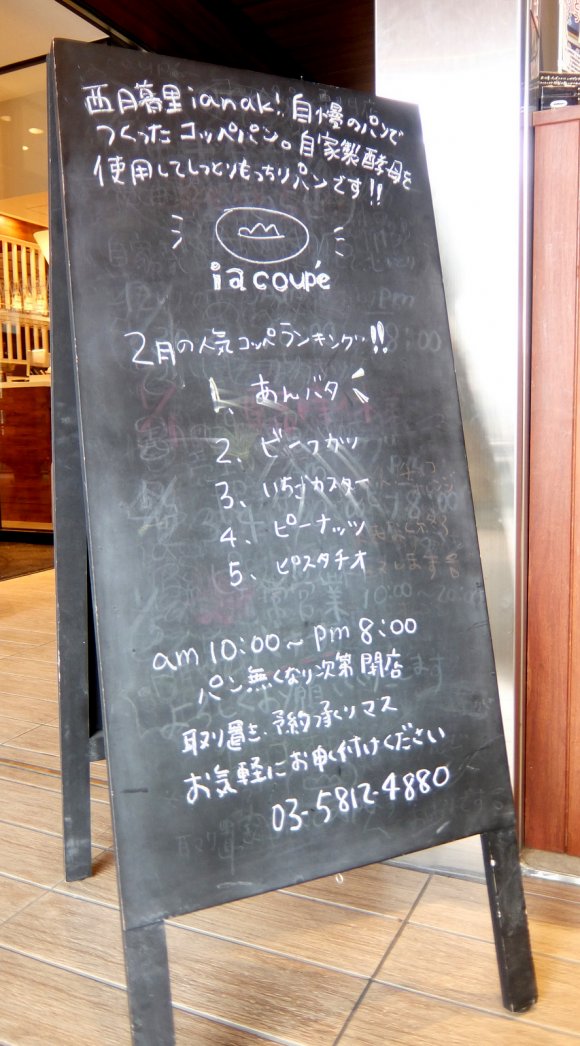 西日暮里ianak!自慢のパンで
つくったコッペパン。自家製酵母を
使用してしっとりもっちりパンです!!
ia coupé
2月の人気コッペランキング!!
1、あんバタ
2、ビーフカツ
3、いちごカスター
4、ピーナッツ
5、ピスタチオ
am 10:00〜pm 8:00
パン無くなり次第閉店
取り置き、予約承りマス
お気軽にお申し付けください
03-5812-4880